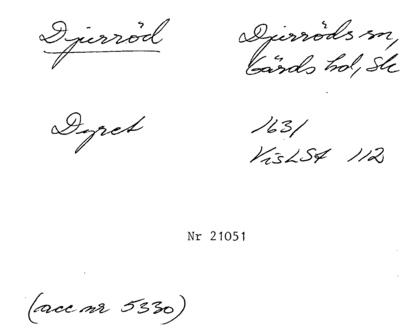 Djurröd
Djurröds sn,
Gärds hd, Sk
Dyret
1631
VisLSt 112
Nr 21051
(acc nr 5330)